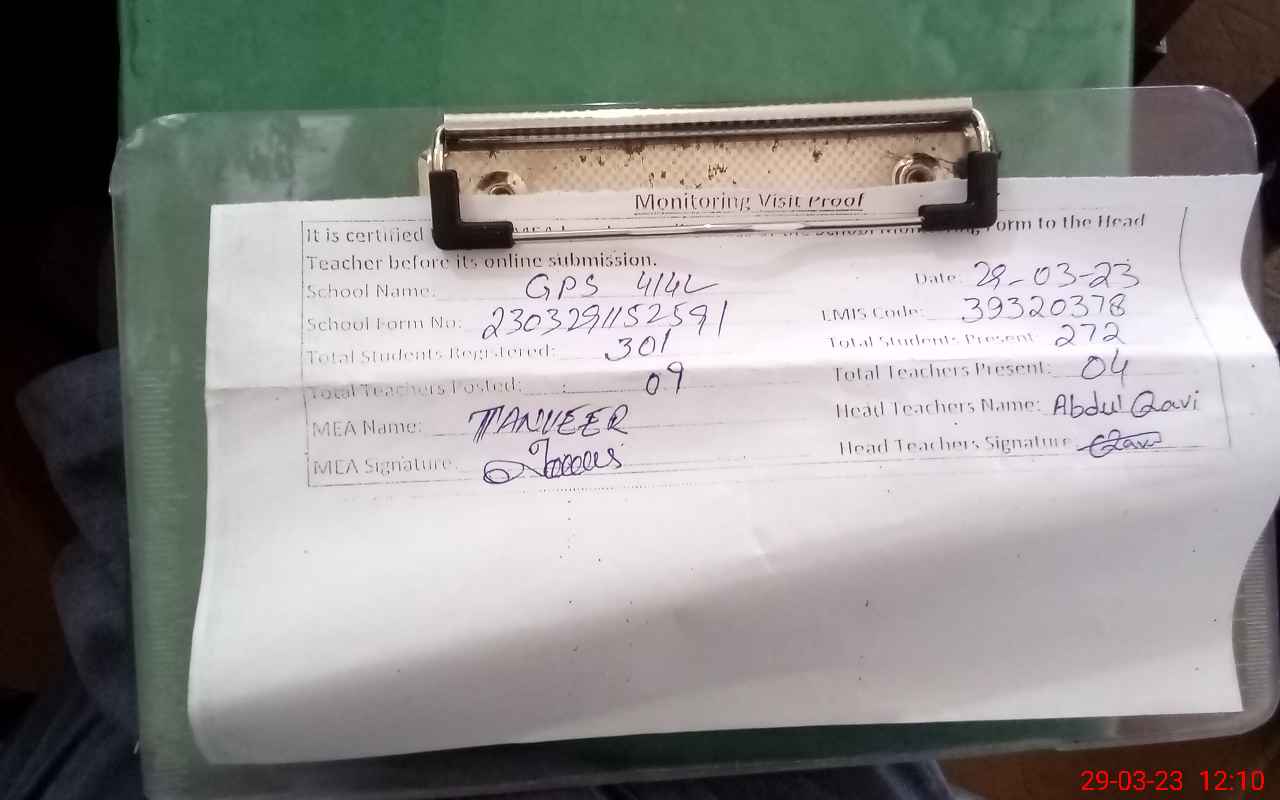 Monitoring Visit Proof
It is certified School Form to the Head
Teacher before its online submission.
School Name: GPS 4/4L Date: 29-03-23
School Form No: 230329115259 1 EMIS Code: 39320378
Total Students Registered: 301 Total Students Present: 272
Total Teachers Posted: 09 Total Teachers Present: 04
MEA Name: TANVEER Head Teachers Name: Abdul Qavi
MEA Signature: Head Teachers Signature Qavi
29-03-23 12:10